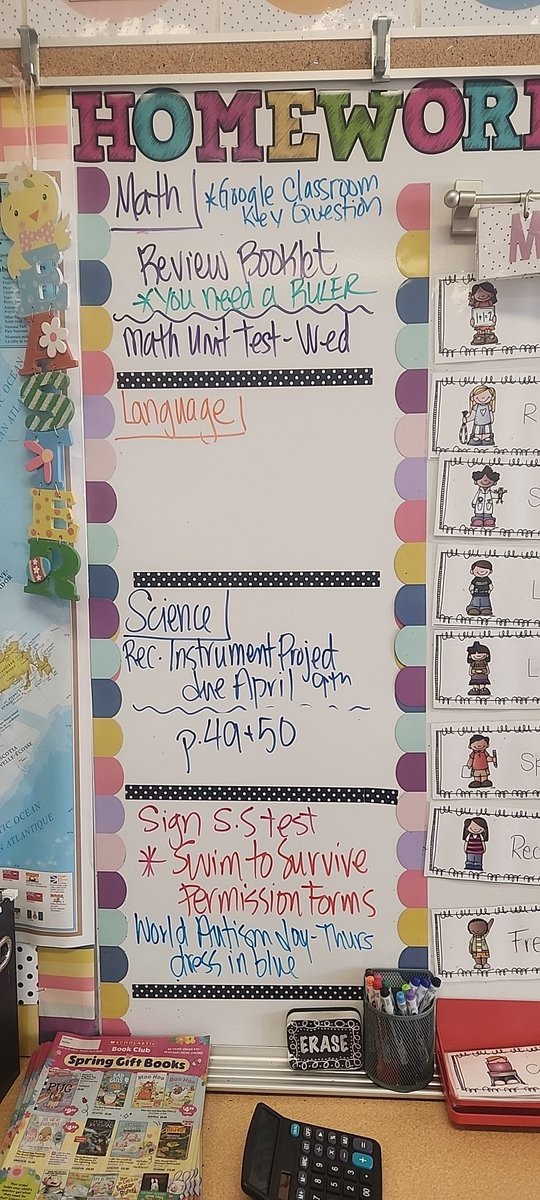 HOMEWOR
Math
*Google Classroom
Key Question
Review Booklet
*You need a RULER
Math Unit Test-Wed
Language
Science
Rec. Instrument Project
due April 9th
p.49+50
Sign S.S test
* Swim to Survive
Permission Forms
World Autism Day-Thurs
dress in blue
EASTER
M
R
S
L
L
Sp
Rec
Fre
ERASE
SCHOLASTIC
Book Club
Spring Gift Books